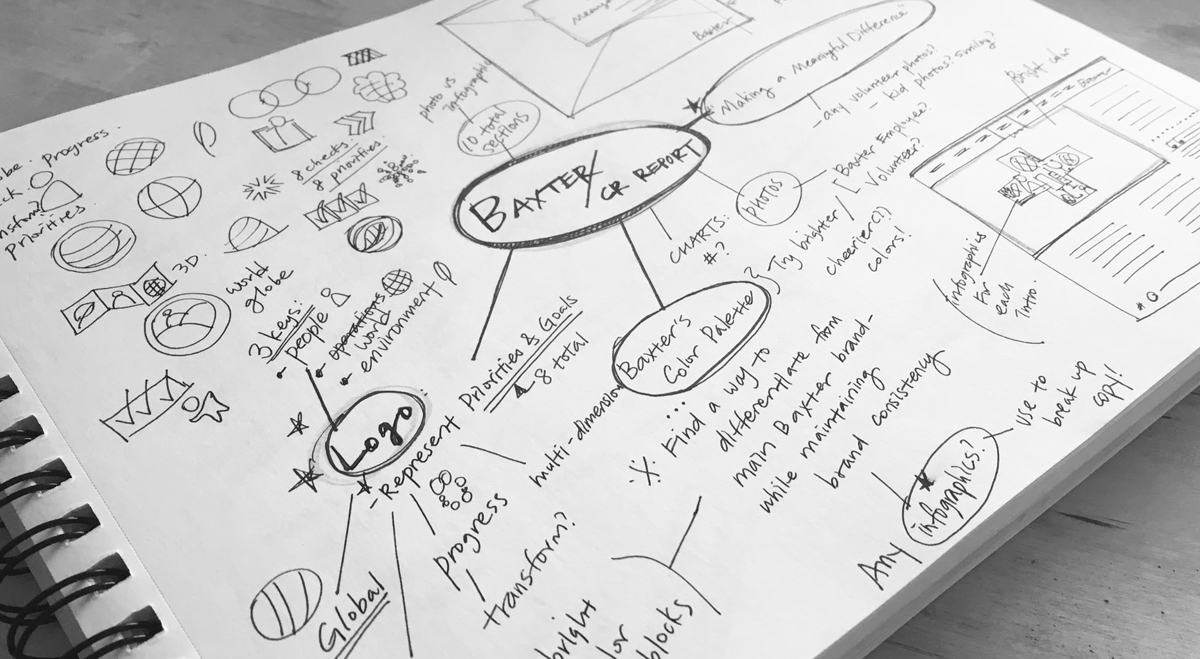 Progress.
Priorities
photo vs
infographic
10 total
sections
8 checks.
8 priorities
3D.
world
globe
3 Keys:
people
operations
world
environment
BAXTER/
CR REPORT
Making a Meaningful Difference"
- any volunteer photos?
- kid photos? smiling?
Baxter Employee?
Volunteer?
PHOTOS
CHARTS:
#?
Try brighter/
cheerier(?)
colors!
Baxter's
Color Palette
Find a way to
differentiate from
main Baxter brand-
while maintaining
brand consistency
multi-dimension
Priorities & Goals
8 total
LOGO
- Represent
progress
transform?
Global
bright
blocks
Bright color
infographics
for
each
intro.
Any infographics?
use to
break up
copy!
Baxter